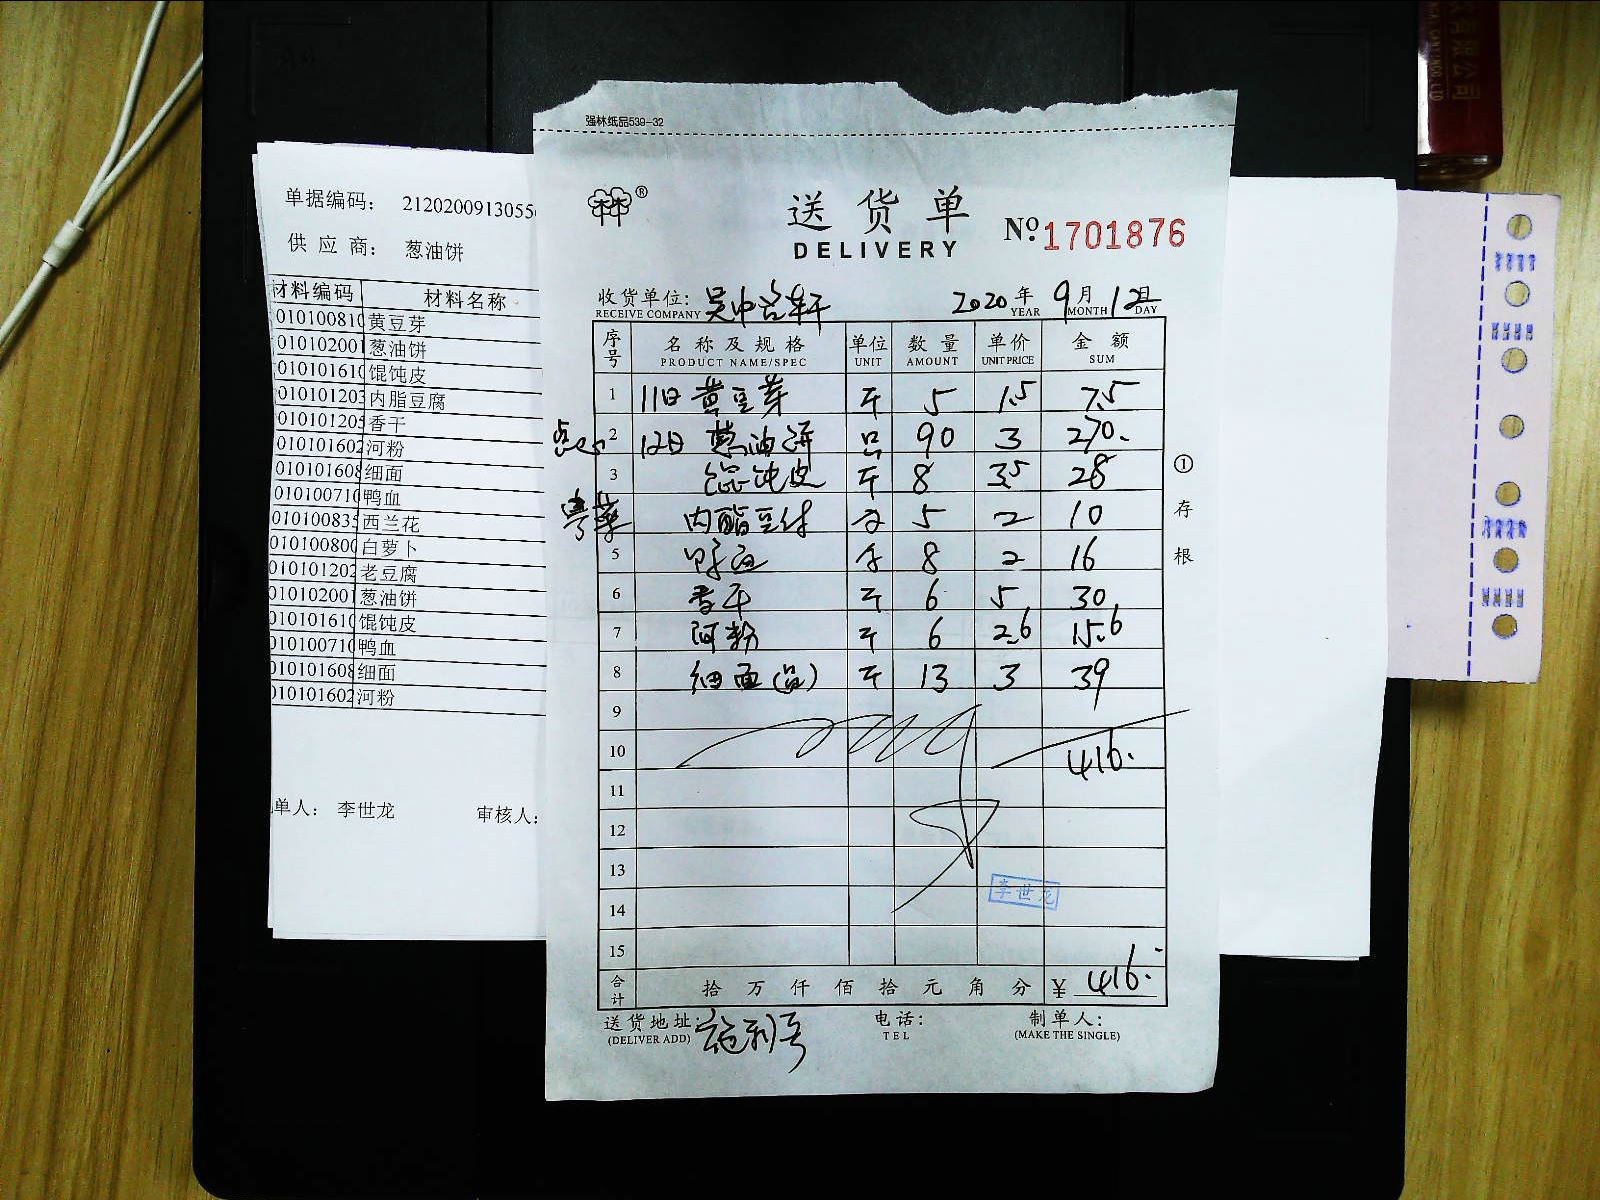 强林纸品539-32
送货单
DELIVERY
№ 1701876
收货单位: 吴中名轩 2020年9月12日
RECEIVE COMPANY YEAR MONTH DAY
序号 名称及规格 单位 数量 单价 金额
PRODUCT NAME/SPEC UNIT AMOUNT UNIT PRICE SUM
1 11日 黄豆芽 斤 5 1.5 7.5
点心 2 12日 葱油饼 只 90 3 270.
3 馄饨皮 斤 8 3.5 28
粤菜 内酯豆付 5 2 10
5 8 2 16
6 香干 斤 6 5 30
7 河粉 斤 6 2.6 15.6
8 细面 斤 13 3 39
9
10 416.
11
12
13
李世龙
14
15
合计 拾万仟佰拾元角分 ¥ 416.
送货地址: 电话: 制单人:
(DELIVER ADD) TEL (MAKE THE SINGLE)
①存根
单据编码: 2120200913055
供应商: 葱油饼
材料编码 材料名称
010100810 黄豆芽
010102001 葱油饼
010101610 馄饨皮
010101203 内脂豆腐
010101205 香干
010101602 河粉
010101608 细面
010100710 鸭血
010100835 西兰花
010100800 白萝卜
010101202 老豆腐
010102001 葱油饼
010101610 馄饨皮
010100710 鸭血
010101608 细面
010101602 河粉
单人: 李世龙 审核人:
有限公司